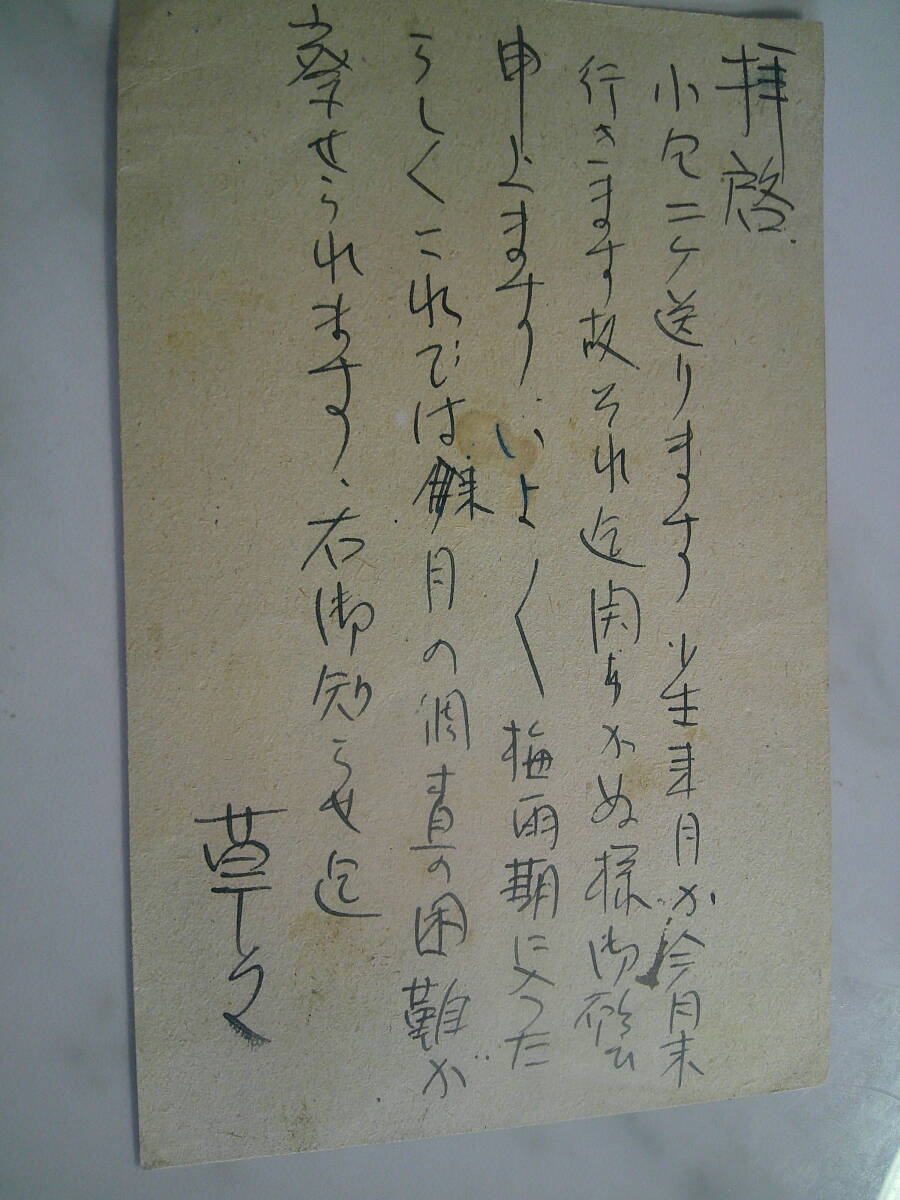 拝啓
小包二ケ送ります 小生来月か今月末
行きます故それ迄開封かぬ様御願ひ
申上ます いよ〱梅雨期に入つた
らしくこれでは来月の調査の困難が
察せられます、右御知らせ迄
草々